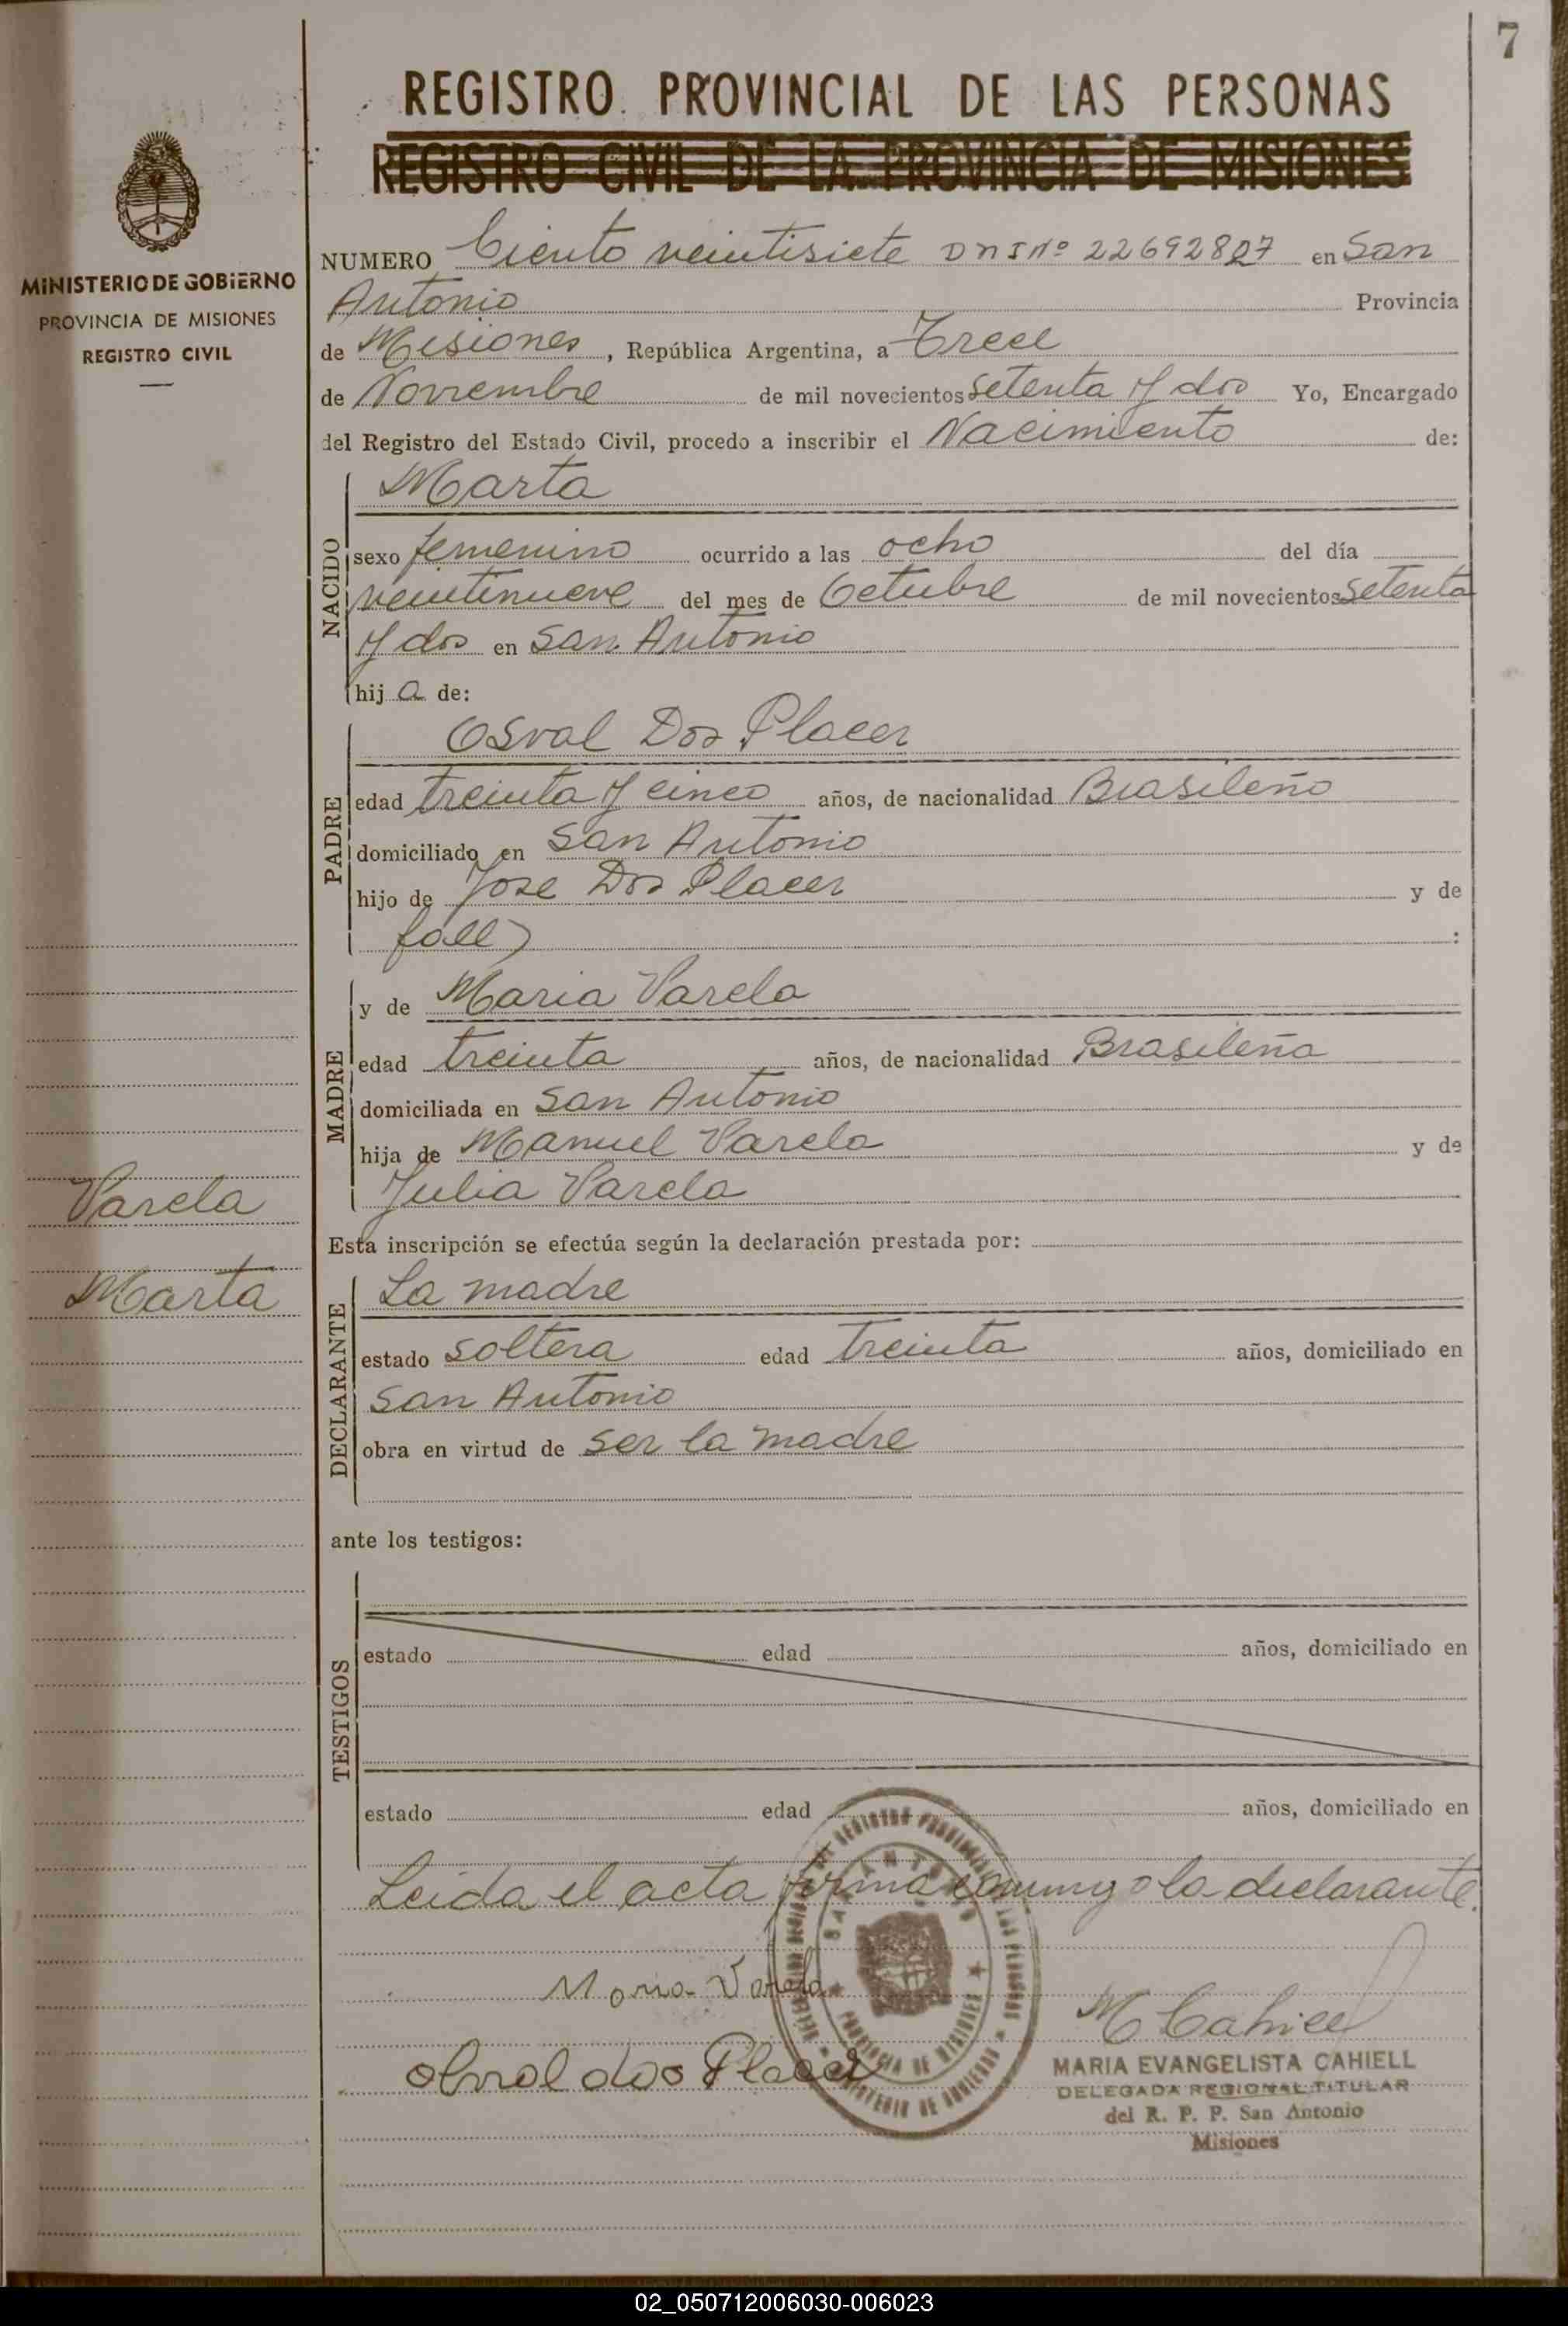 7
REGISTRO PROVINCIAL DE LAS PERSONAS
REGISTRO CIVIL DE LA PROVINCIA DE MISIONES
MINISTERIO DE GOBIERNO
PROVINCIA DE MISIONES
REGISTRO CIVIL
NUMERO Ciento veintisiete DNI Nº 22692827 en San
Antonio Provincia
de Misiones, República Argentina, a Trece
de Noviembre de mil novecientos setenta y dos Yo, Encargado
del Registro del Estado Civil, procedo a inscribir el Nacimiento de:
NACIDO
Marta
sexo femenino ocurrido a las ocho del día
veintinueve del mes de Octubre de mil novecientos setenta
y dos en San Antonio
hij a de:
PADRE
Osval Dos Placer
edad treinta y cinco años, de nacionalidad Brasileño
domiciliado en San Antonio
hijo de Jose Dos Placer y de
fall)
MADRE
y de Maria Varela
edad treinta años, de nacionalidad Brasileña
domiciliada en San Antonio
hija de Manuel Varela y de
Julia Varela
Varela
Marta
Esta inscripción se efectúa según la declaración prestada por:
DECLARANTE
La madre
estado soltera edad treinta años, domiciliado en
San Antonio
obra en virtud de ser la madre
ante los testigos:
TESTIGOS
estado edad años, domiciliado en
estado edad años, domiciliado en
Leida el acta firma conmigo la declarante.
Maria Varela
M Cahiell
dos Placer
MARIA EVANGELISTA CAHIELL
DELEGADA REGIONAL TITULAR
del R. P. P. San Antonio
Misiones
SAN ANTONIO
PROVINCIA DE MISIONES
02_050712006030-006023